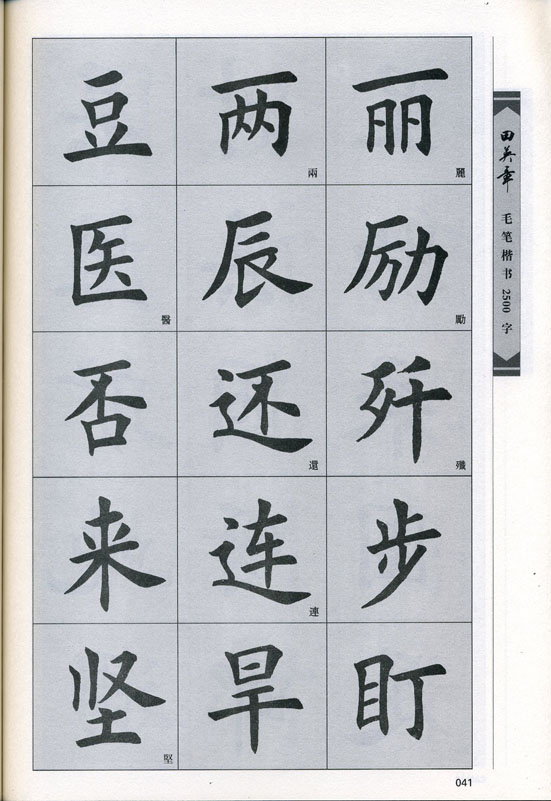 豆 两 兩 丽 麗
医 醫 辰 励 勵
否 还 還 歼 殲
来 连 連 步
坚 堅 旱 盯
田英章
毛笔楷书2500字
041